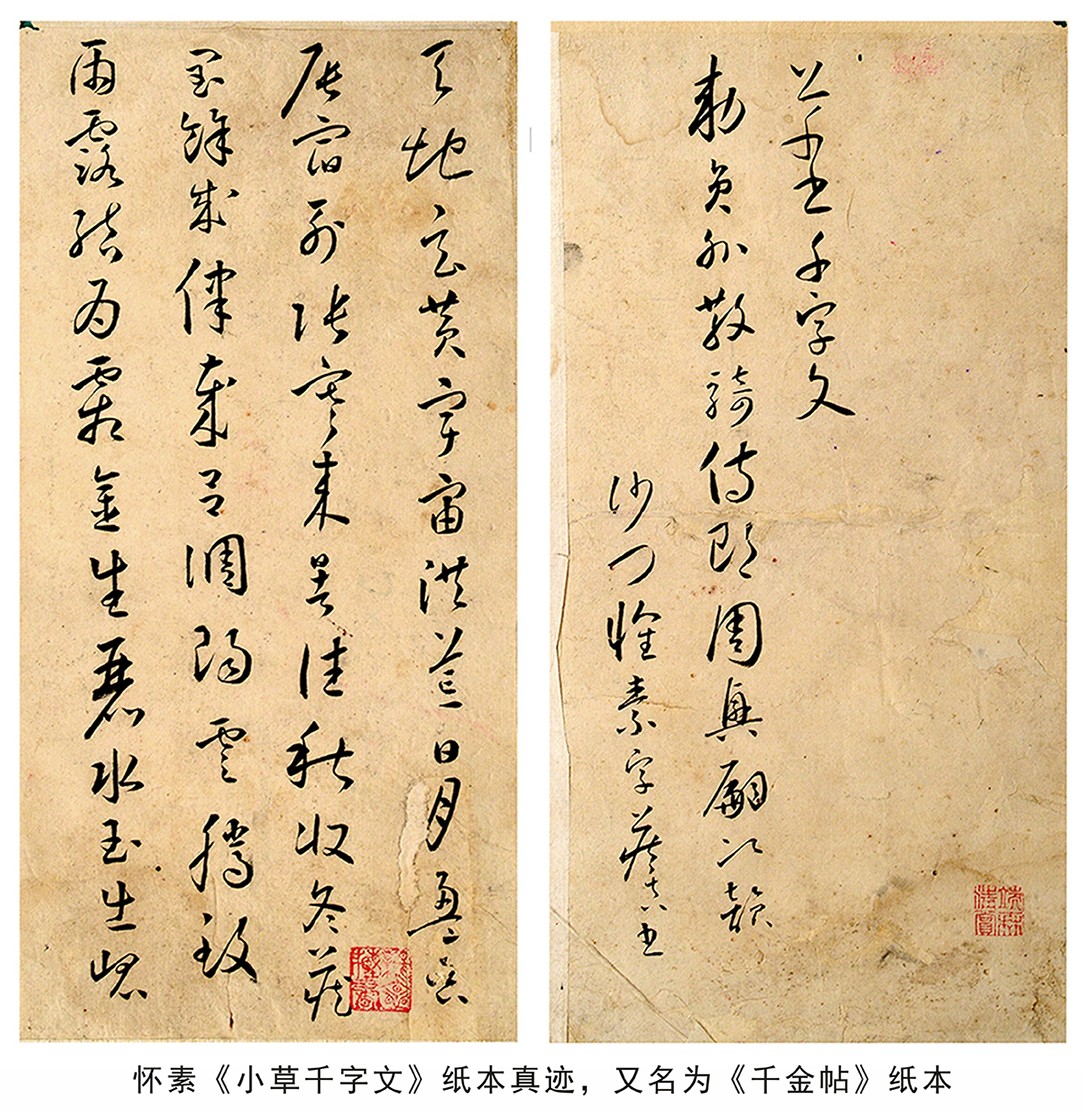 草書千字文
勅員外散騎侍郎周興嗣次韻
沙門懷素字藏真書
天地玄黃宇宙洪荒日月盈昃
辰宿列張寒來暑往秋收冬藏
閏餘成律歲呂調陽雲騰致
雨露結為霜金生麗水玉出崑
怀素《小草千字文》纸本真迹，又名为《千金帖》纸本